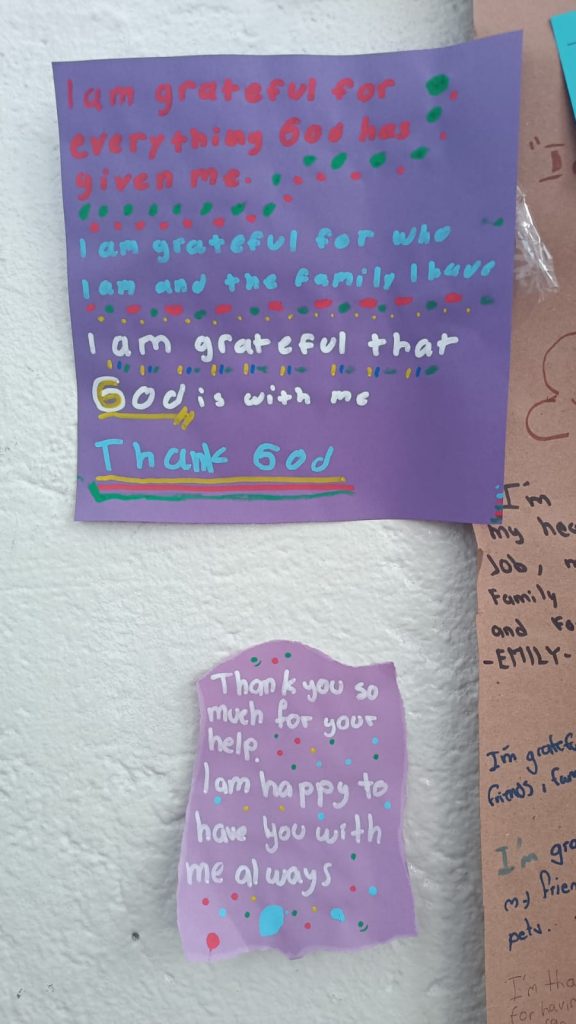 I am grateful for
everything God has
given me.
I am grateful for who
I am and the family I have
I am grateful that
God is with me
Thank God
Thank you so
much for your
help.
I am happy to
have you with
me always
"I
I'm
my
Job,
Family
and
-EMILY-
I'm
friends,
I'm
my
pets.
I'm
for having